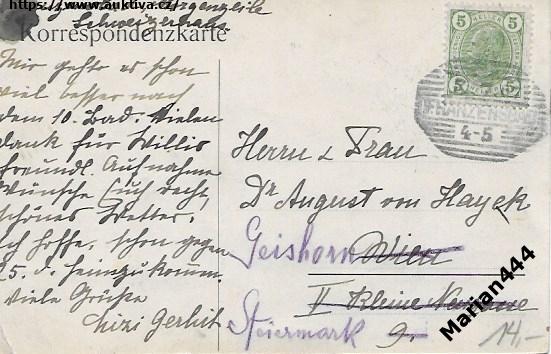 https://www.auktiva.cz/
Schweizerhaus
Korrespondenzkarte
Mir gehts es schon
viel besser nach
dem 10. Bad. Vielen
dank für Willis
freundl. Aufnahme
Wünsche Euch recht
schönes Wetter.
Ich hoffe, schon gegen
25. d. heimzukommen.
Viele Grüße
Lizi
5 HELLER 5
5 5
FRANZENSBAD
4-5
Herrn & Frau
Dr August von Hayek
Geishorn Wien
II Kleine
Steiermark 9.
14,-
Marian444